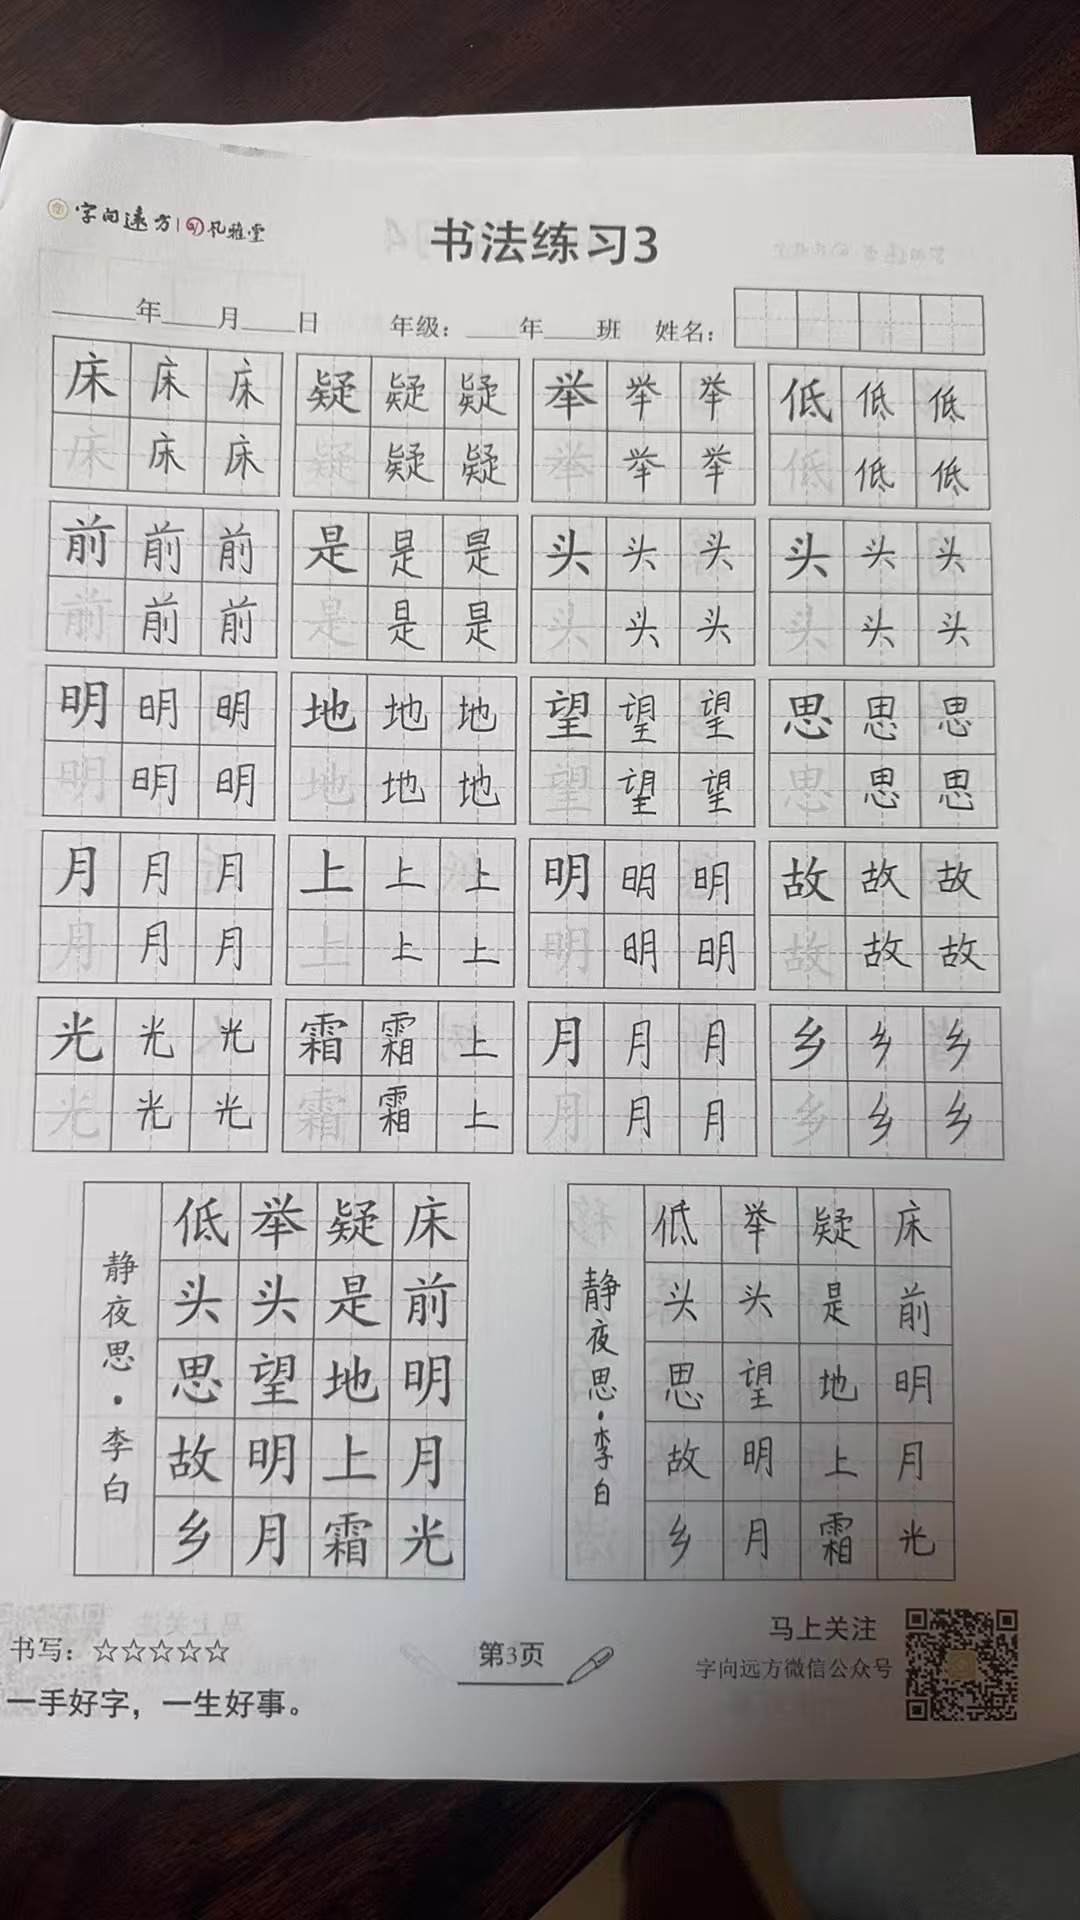 字向远方 风雅堂
书法练习3
年 月 日 年级： 年 班 姓名：
床 床 床 疑 疑 疑 举 举 举 低 低 低
床 床 床 疑 疑 疑 举 举 举 低 低 低
前 前 前 是 是 是 头 头 头 头 头 头
前 前 前 是 是 是 头 头 头 头 头 头
明 明 明 地 地 地 望 望 望 思 思 思
明 明 明 地 地 地 望 望 望 思 思 思
月 月 月 上 上 上 明 明 明 故 故 故
月 月 月 上 上 上 明 明 明 故 故 故
光 光 光 霜 霜 上 月 月 月 乡 乡 乡
光 光 光 霜 霜 上 月 月 月 乡 乡 乡
床前明月光
疑是地上霜
举头望明月
低头思故乡
静夜思·李白
床前明月光
疑是地上霜
举头望明月
低头思故乡
静夜思·李白
书写：☆☆☆☆☆
一手好字，一生好事。
第3页
马上关注
字向远方微信公众号